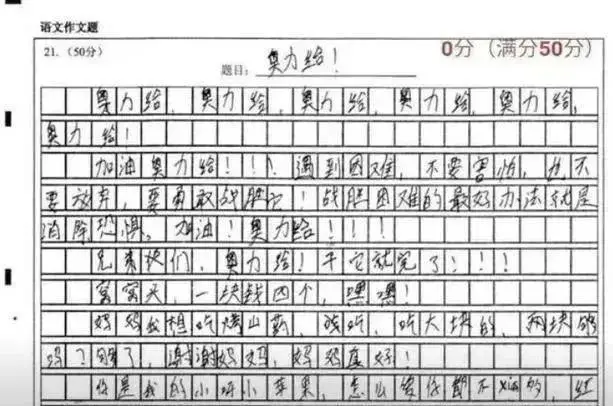 语文作文题
21.（50分）
0分（满分50分）
题目：奥力给！
奥力给，奥力给，奥力给，奥力给，奥力给，
奥力给！
加油奥力给！！！遇到困难，不要害怕，也不
要放弃，要勇敢战胜它！战胜困难的最好办法就是
消除恐惧。加油！奥力给！！！
兄弟们，奥力给！干它就完了！！！
窝窝头，一块钱四个，嘿嘿！
妈妈我想吃烤山药，吃吃，吃大块的，两块够
吗？够了，谢谢妈妈，妈妈真好！
你是我的小呀小苹果，怎么爱你都不xian的，红